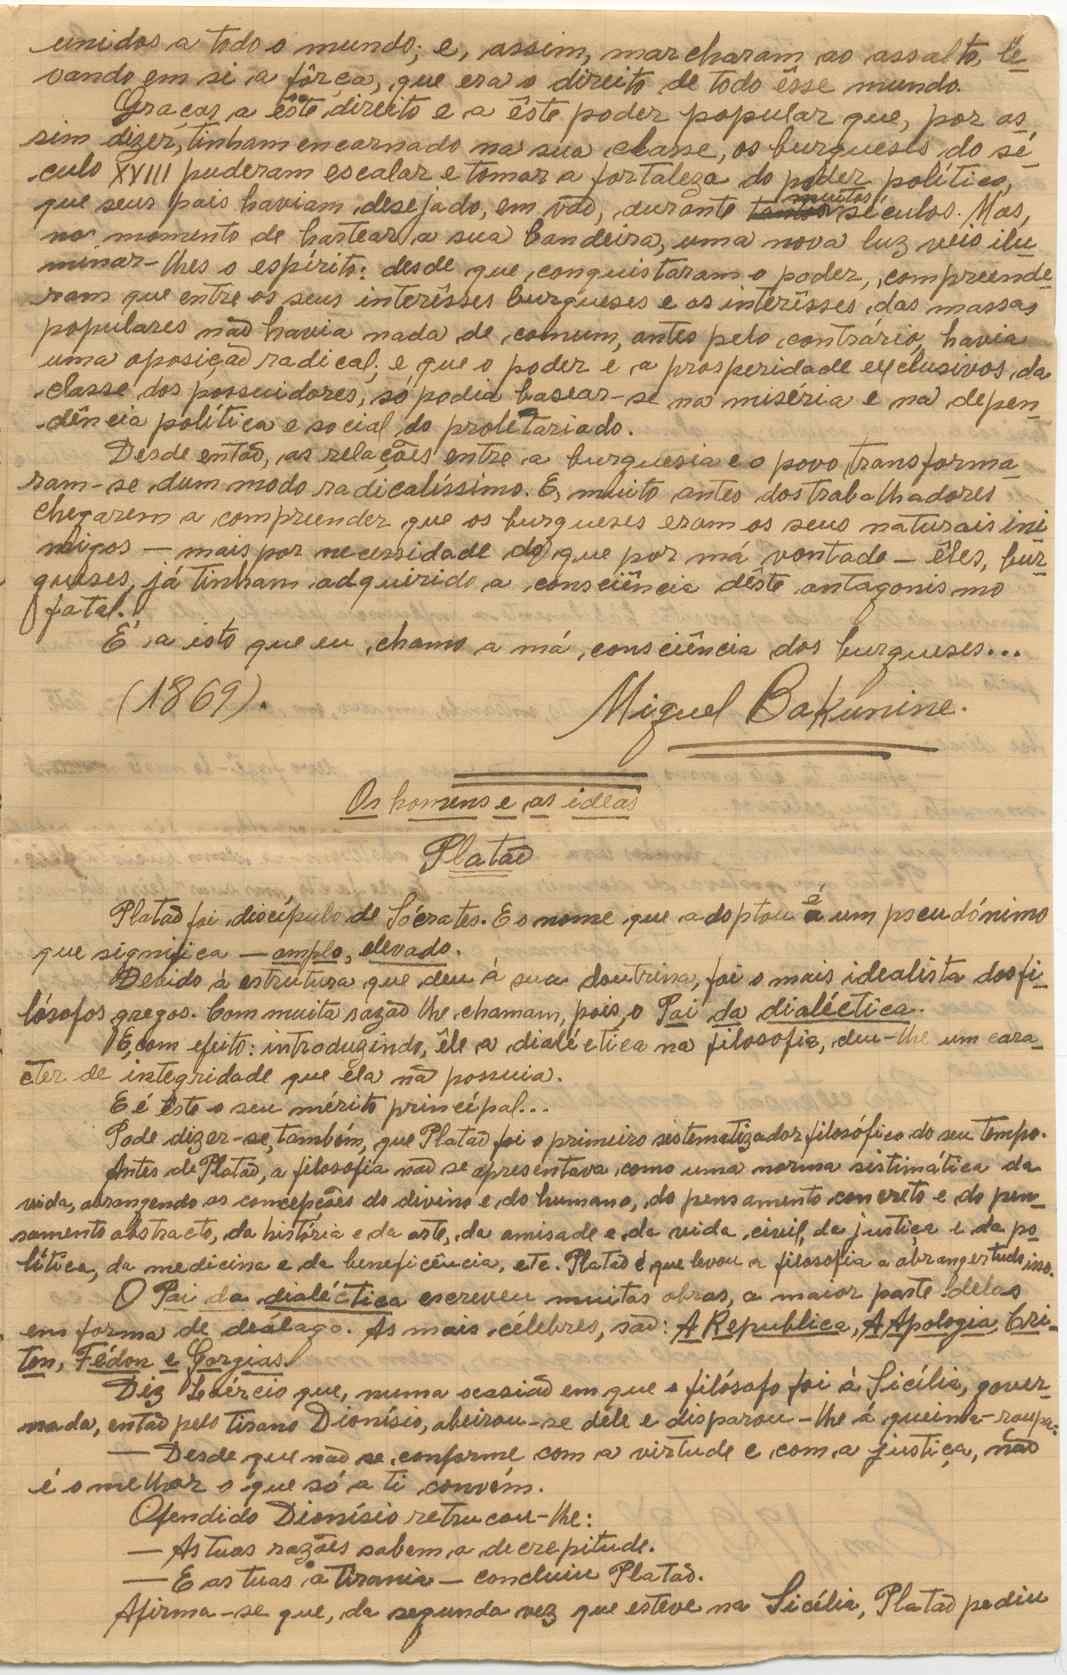 unidos a todo o mundo; e, assim, marcharam ao assalto, le-
vando em si a fôrça, que era o direito de todo êsse mundo.
Graças a êste direito e a êste poder popular que, por as-
sim dizer, tinham encarnado na sua classe, os burgueses do sé-
culo XVIII puderam escalar e tomar a fortaleza do poder político,
que seus pais haviam desejado, em vão, durante muitos séculos. Mas,
no momento de hastear a sua bandeira, uma nova luz veio ilu-
minar-lhes o espírito: desde que conquistaram o poder, compreende-
ram que entre os seus interêsses burgueses e os interêsses das massas
populares não havia nada de comum, antes pelo contrário, havia
uma oposição radical; e que o poder e a prosperidade exclusivos da
classe dos possuidores, só podia basear-se na miséria e na depen-
dência política e social do proletariado.
Desde então, as relações entre a burguesia e o povo transforma-
ram-se dum modo radicalíssimo. E, muito antes dos trabalhadores
chegarem a compreender que os burgueses eram os seus naturais ini
migos — mais por necessidade do que por má vontade — êles, bur-
gueses, já tinham adquirido a consciência dêste antagonismo
fatal.
É a isto que eu chamo a má consciência dos burgueses...
(1869). Miguel Bakunine.
Os homens e as ideas
Platão
Platão foi discípulo de Sócrates. E o nome que adoptou é um pseudónimo
que significa — amplo, elevado.
Devido à estrutura que deu à sua doutrina, foi o mais idealista dos fi-
lósofos gregos. Com muita razão lhe chamam, pois, o Pai da dialéctica.
E, com efeito: introduzindo, êle a dialéctica na filosofia, deu-lhe um cara-
cter de integridade que ela não possuia.
E é êste o seu mérito principal...
Pode dizer-se, também, que Platão foi o primeiro sistematizador filosófico do seu tempo.
Antes de Platão, a filosofia não se apresentava como uma norma sistimática da
vida, abrangendo as concepções do divino e do humano, do pensamento concreto e do pen-
samento abstracto, da história e da arte, da amisade e da vida civil, da justiça e da po-
lítica, da medicina e da beneficência, etc. Platão é que levou a filosofia a abranger tudo isso.
O Pai da dialéctica escreveu muitas obras, a maior parte delas
em forma de deálago. As mais célebres, são: A Republica, A Apologia, Cri-
ton, Fédon e Gorgias.
Diz Laércio que, numa ocasião em que o filósofo foi à Sicília, gover-
nada, então pelo tirano Dionísio, abeirou-se dele e disparou-lhe à queima-roupa:
— Desde que não se conforme com a virtude e com a justiça, não
é o melhor o que só a ti convém.
Ofendido Dionísio retrucou-lhe:
— As tuas razões sabem a decrepitude.
— E as tuas a tirania — concluiu Platão.
Afirma-se que, da segunda vez que esteve na Sicília, Platão pediu